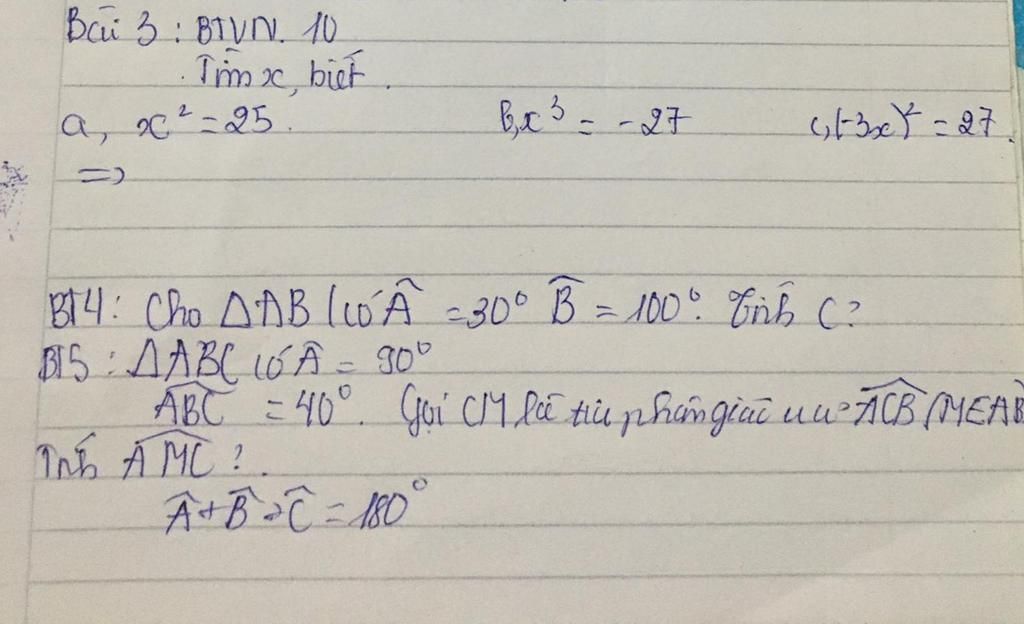 Bài 3 : BTVN. 10
Tìm x, biết.
a, x² = 25. b, x³ = -27 c, (-3x)² = 27.
=>
BT4: Cho ΔABC có Â = 30° B̂ = 100°. Tính C?
BT5 : ΔABC có Â = 90°
ABC = 40°. Gọi CM là tia phân giác của ACB (M∈AB
Tính AMC ?.
Â + B̂ + Ĉ = 180°